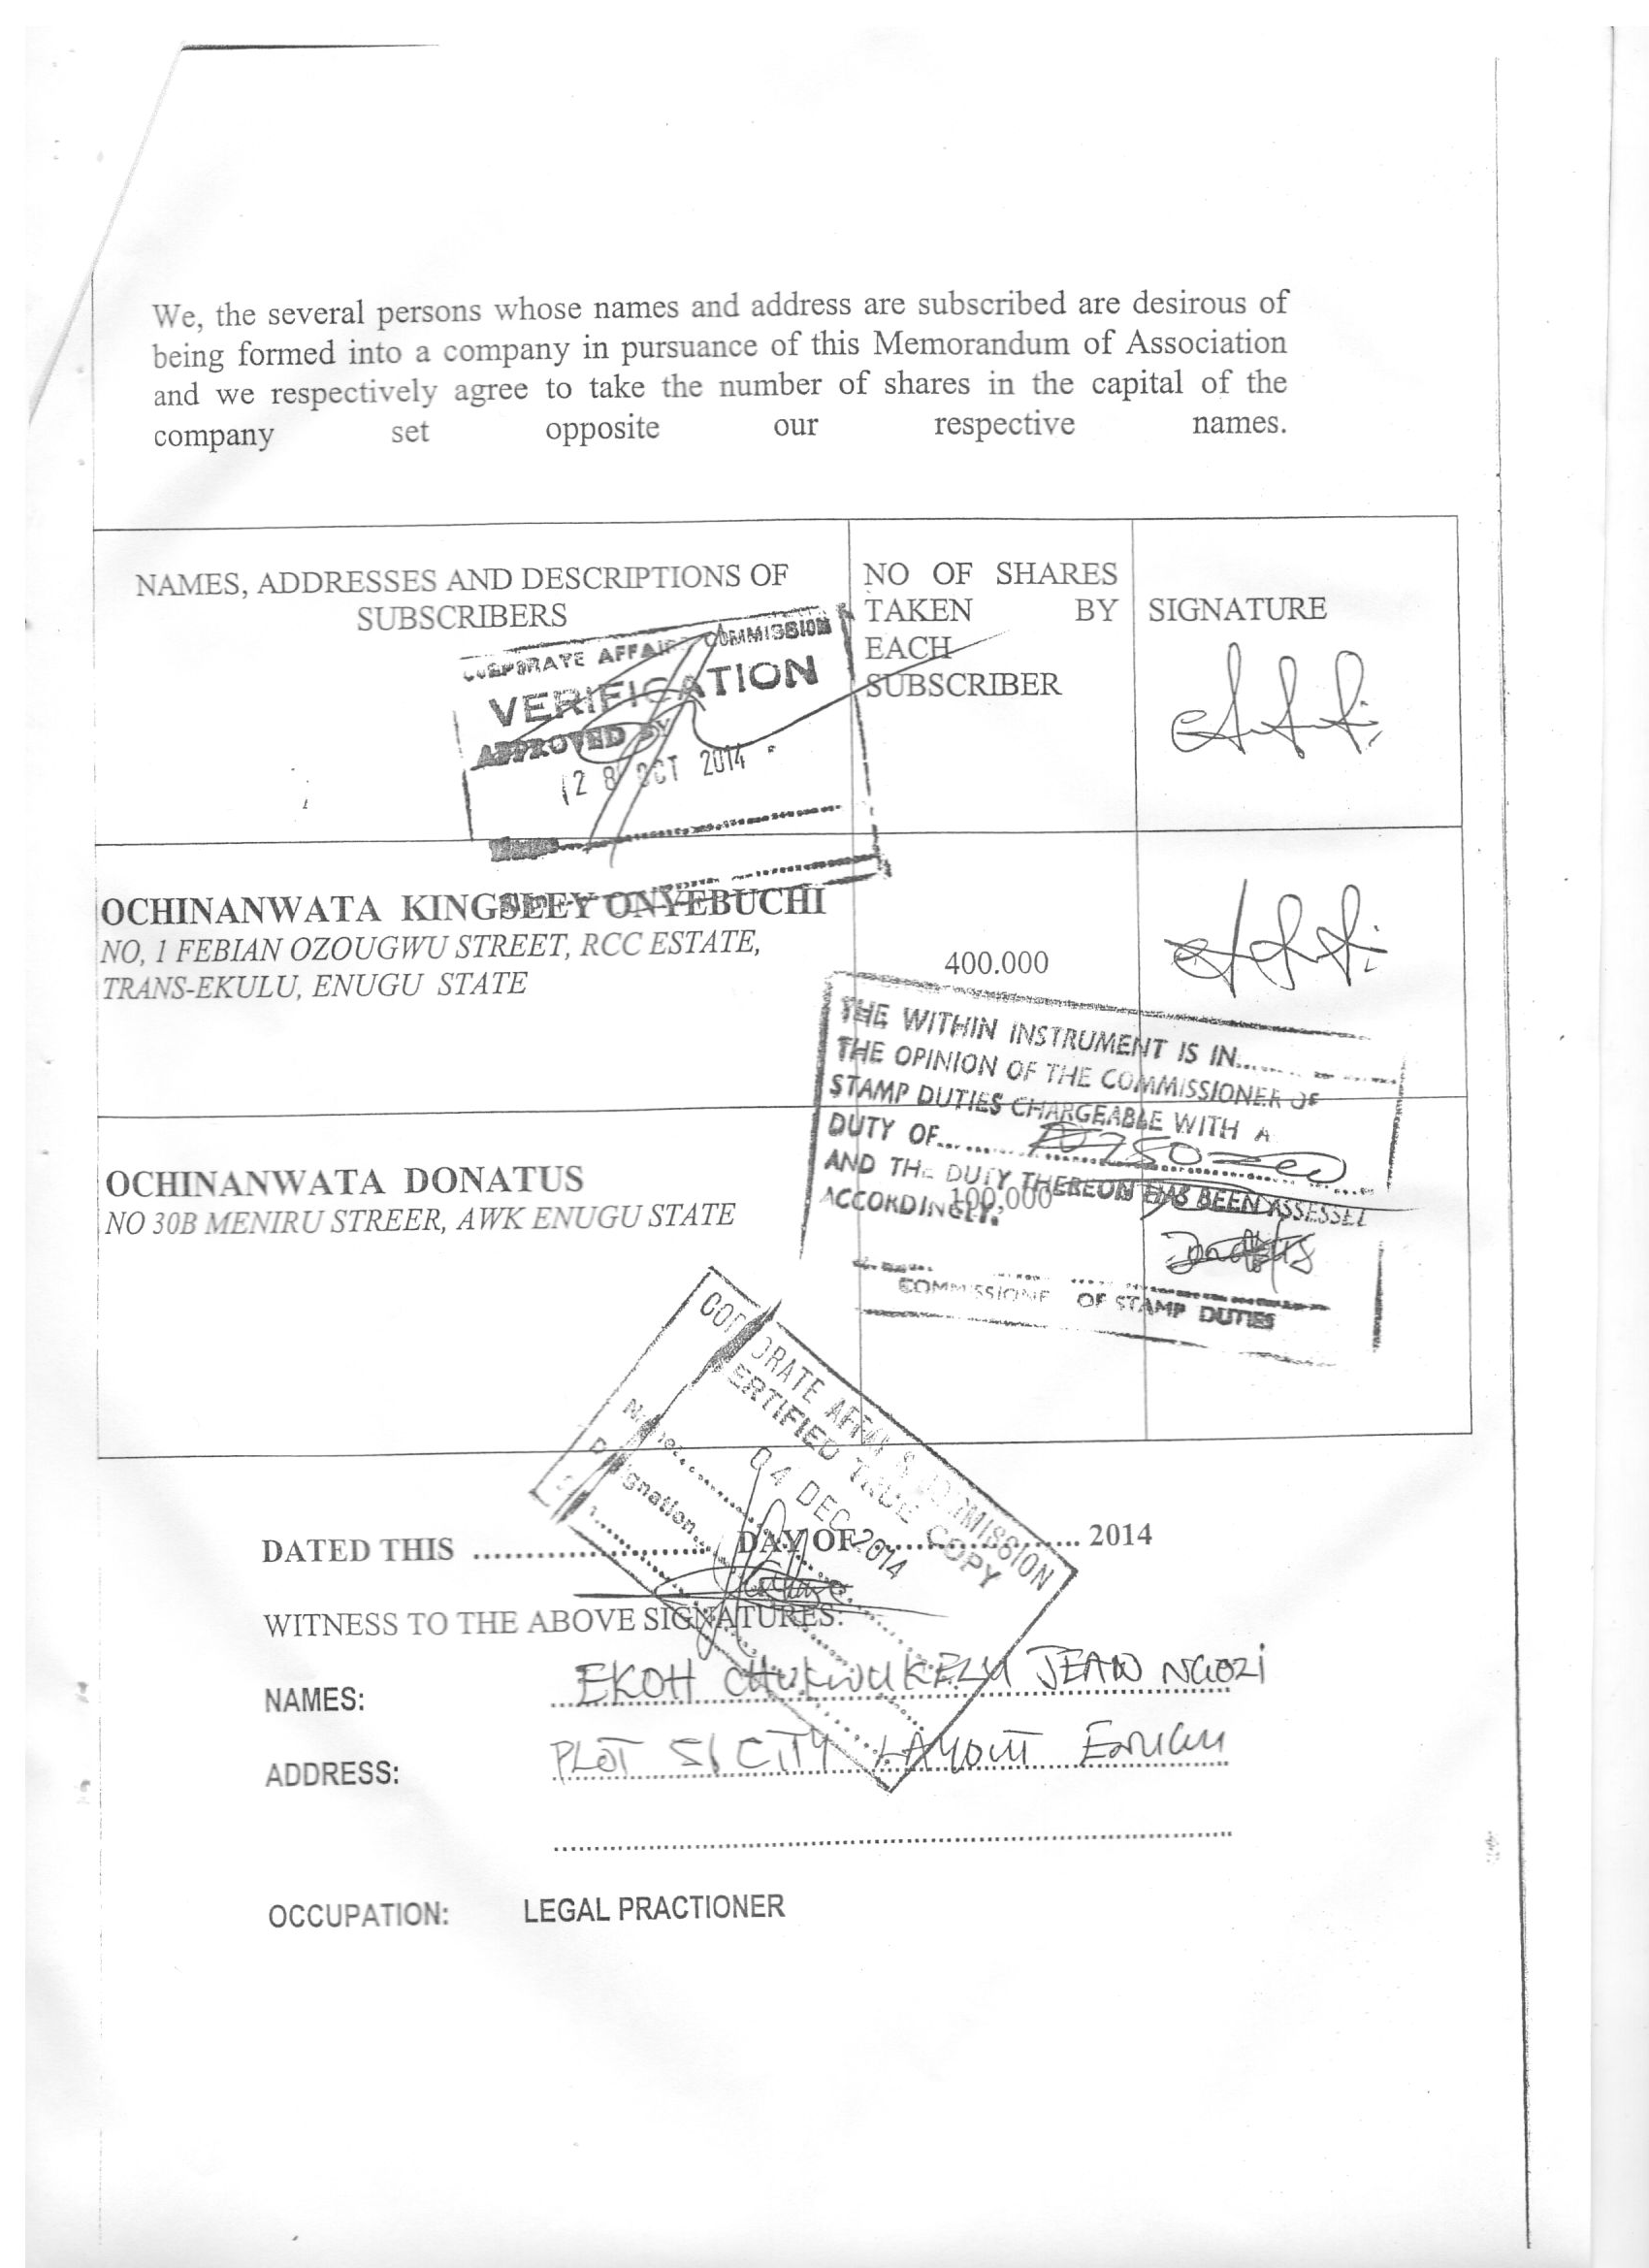 We, the several persons whose names and address are subscribed are desirous of
being formed into a company in pursuance of this Memorandum of Association
and we respectively agree to take the number of shares in the capital of the
company set opposite our respective names.
NAMES, ADDRESSES AND DESCRIPTIONS OF
SUBSCRIBERS
NO OF SHARES
TAKEN BY
EACH
SUBSCRIBER
SIGNATURE
CORPORATE AFFAIRS COMMISSION
VERIFICATION
APPROVED BY
28 OCT 2014
OCHINANWATA KINGSLEY ONYEBUCHI
NO, 1 FEBIAN OZOUGWU STREET, RCC ESTATE,
TRANS-EKULU, ENUGU STATE
400.000
THE WITHIN INSTRUMENT IS IN......
THE OPINION OF THE COMMISSIONER OF
STAMP DUTIES CHARGEABLE WITH A
DUTY OF......
AND THE DUTY THEREON HAS BEEN ASSESSED
ACCORDINGLY.
COMMISSIONE OF STAMP DUTIES
OCHINANWATA DONATUS
NO 30B MENIRU STREER, AWK ENUGU STATE
100,000
CORPORATE AFFAIRS COMMISSION
CERTIFIED TRUE COPY
04 DEC 2014
Name......
Designation......
DATED THIS ........................ DAY OF .................. 2014
WITNESS TO THE ABOVE SIGNATURES:
NAMES: EKOH CHUKWUKELU JEAN NGOZI
ADDRESS: PLOT 51 CITY LAYOUT ENUGU
OCCUPATION: LEGAL PRACTIONER